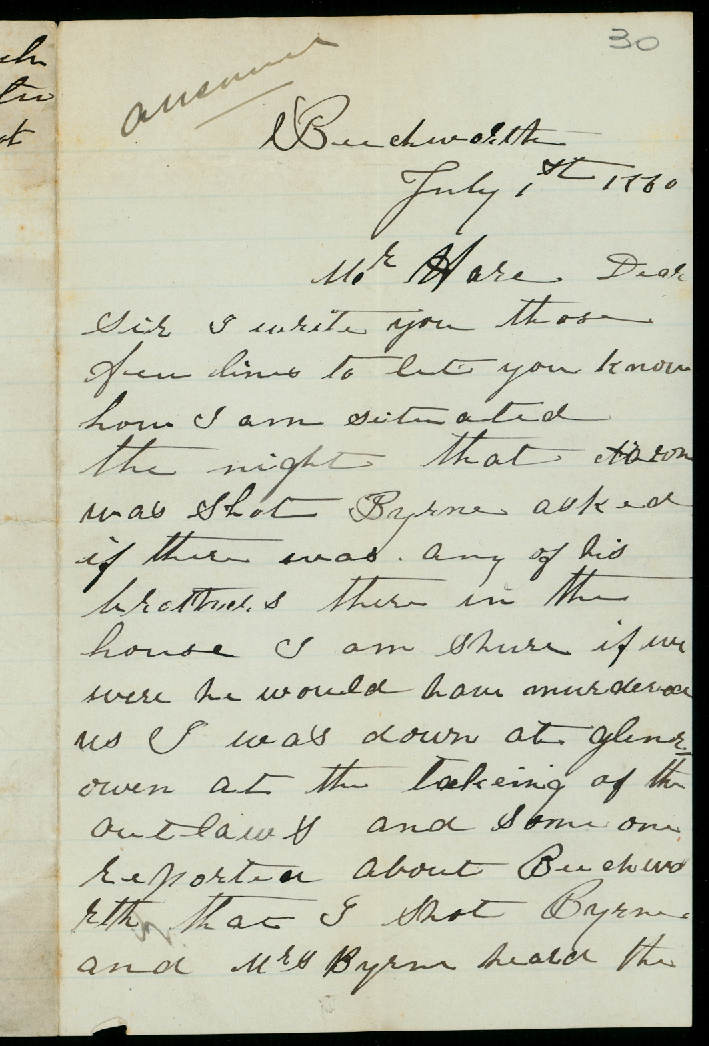 30
answered
Beechworth
July 1st 1880
Mr Hare Dear
Sir I write you those
few lines to let you know
how I am situated
the night that Aaron
was Shot Byrne asked
if there was any of his
brothers there in the
house I am Shure if we
were he would have murdered
us I was down at glenr
owen at the takeing of the
outlaws and some one
reported about Beechwo
rth that I Shot Byrne
and Mrs Byrne heard the